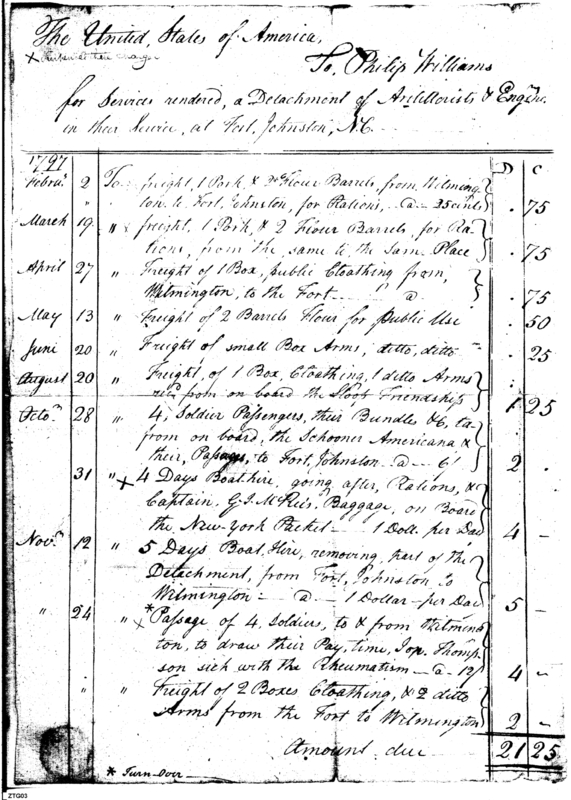 The United, States of America,
To, Philip Williams
for Services rendered, a Detachment of Artillorists & Engrs.
in their Service, at Fort, Johnston, N.C.
1797 D C
Febru. 2 To freight, 1 Pork, & 2 Flour Barrels, from Wilming-
" ton to Fort, Johnston, for Rations, a 25 cents . 75
March 19 " freight, 1 Pork, & 2 Flour Barrels, for Ra-
tions, from the same to the same Place . 75
April 27 " Freight of 1 Box, public Cloathing from,
Wilmington, to the Fort a . 75
May 13 " Freight of 2 Barrels Flour for public Use . 50
June 20 " Freight of small Box Arms, ditto, ditto . 25
August 20 " Freight, of 1 Box, Cloathing, 1 ditto Arms
from on board the Sloop Friendship 1 25
Octo. 28 " 4, Soldier Passengers, their Bundles &c, ta-
from on board, the Schooner Americana &
their, Passage, to Fort, Johnston a 6/ 2 .
31 " x 4 Days Boat hire, going after, Rations, &
Captain, Baggage, on Board
the New-York Packet 1 Doll. per Day 4 –
Novr. 12 " 5 Days Boat, Hire, removing, part of the
Detachment, from Fort, Johnston to
Wilmington a 1 Dollar per Day 5 –
" 24 " x * Passage of 4, Soldiers, to & from Wilming-
ton, to draw their Pay, time, Jos. Thomp-
son sick with the Rheumatism a 12/ 4 –
" " Freight of 2 Boxes Cloathing, & 2 ditto
Arms from the Fort to Wilmington 2 –
Amount due 21 25
* Turn Over
ZTG03